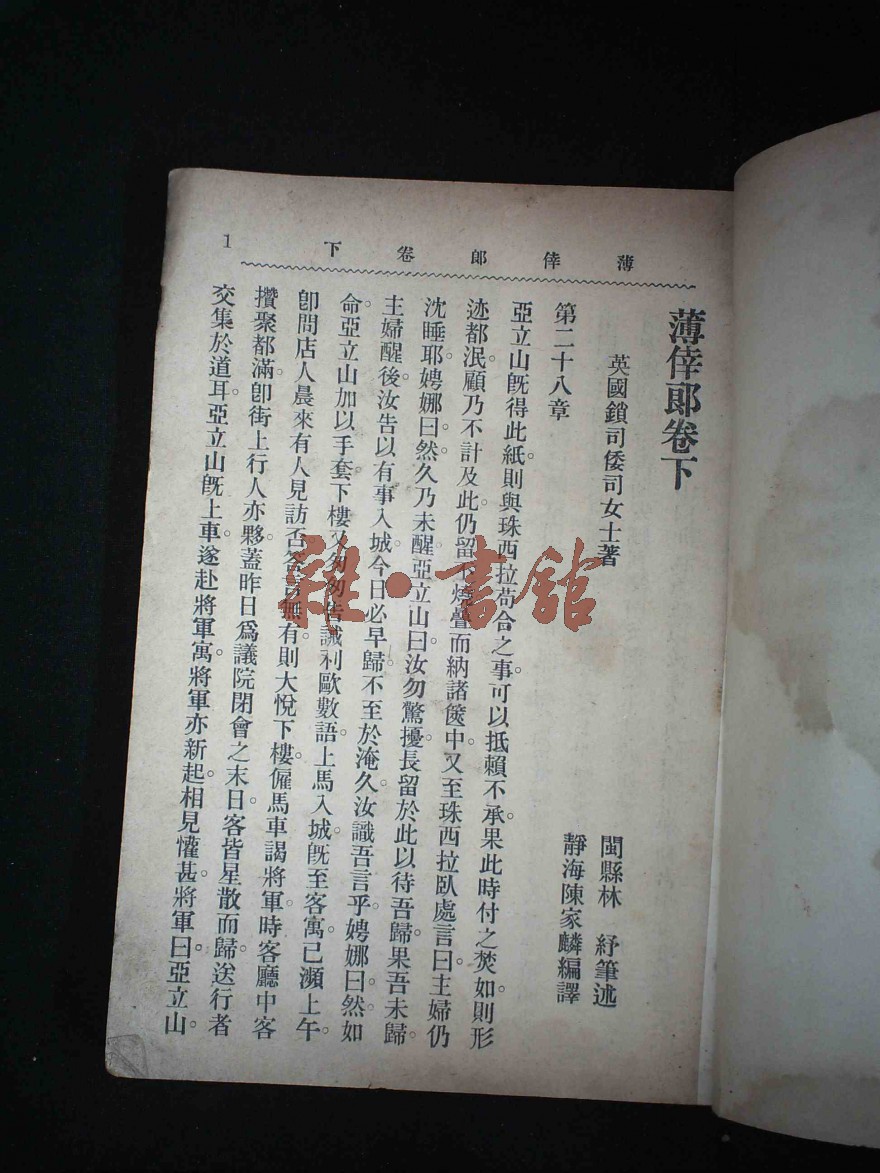 薄倖郎卷下
1
薄倖郎卷下
英國鎖司倭司女士著
閩縣林　紓筆述
靜海陳家麟編譯
第二十八章
亞立山旣得此紙則與珠西拉苟合之事可以抵賴不承果此時付之焚如則形
迹都泯顧乃不計及此仍留下燒疊而納諸篋中又至珠西拉臥處言曰主婦仍
沈睡耶娉娜曰然久乃未醒亞立山曰汝勿驚擾長留於此以待吾歸果吾未歸
主婦醒後汝告以有事入城今日必早歸不至於淹久汝識吾言乎娉娜曰然如
命亞立山加以手套下樓又匆匆告誡利歐數語上馬入城旣至客寓已瀕上午
卽問店人晨來有人見訪否答言無有則大悅下樓僱馬車謁將軍時客廳中客
攢聚都滿卽街上行人亦夥蓋昨日爲議院閉會之末日客皆星散而歸送行者
交集於道耳亞立山旣上車遂赴將軍寓將軍亦新起相見懽甚將軍曰亞立山
雜·書館